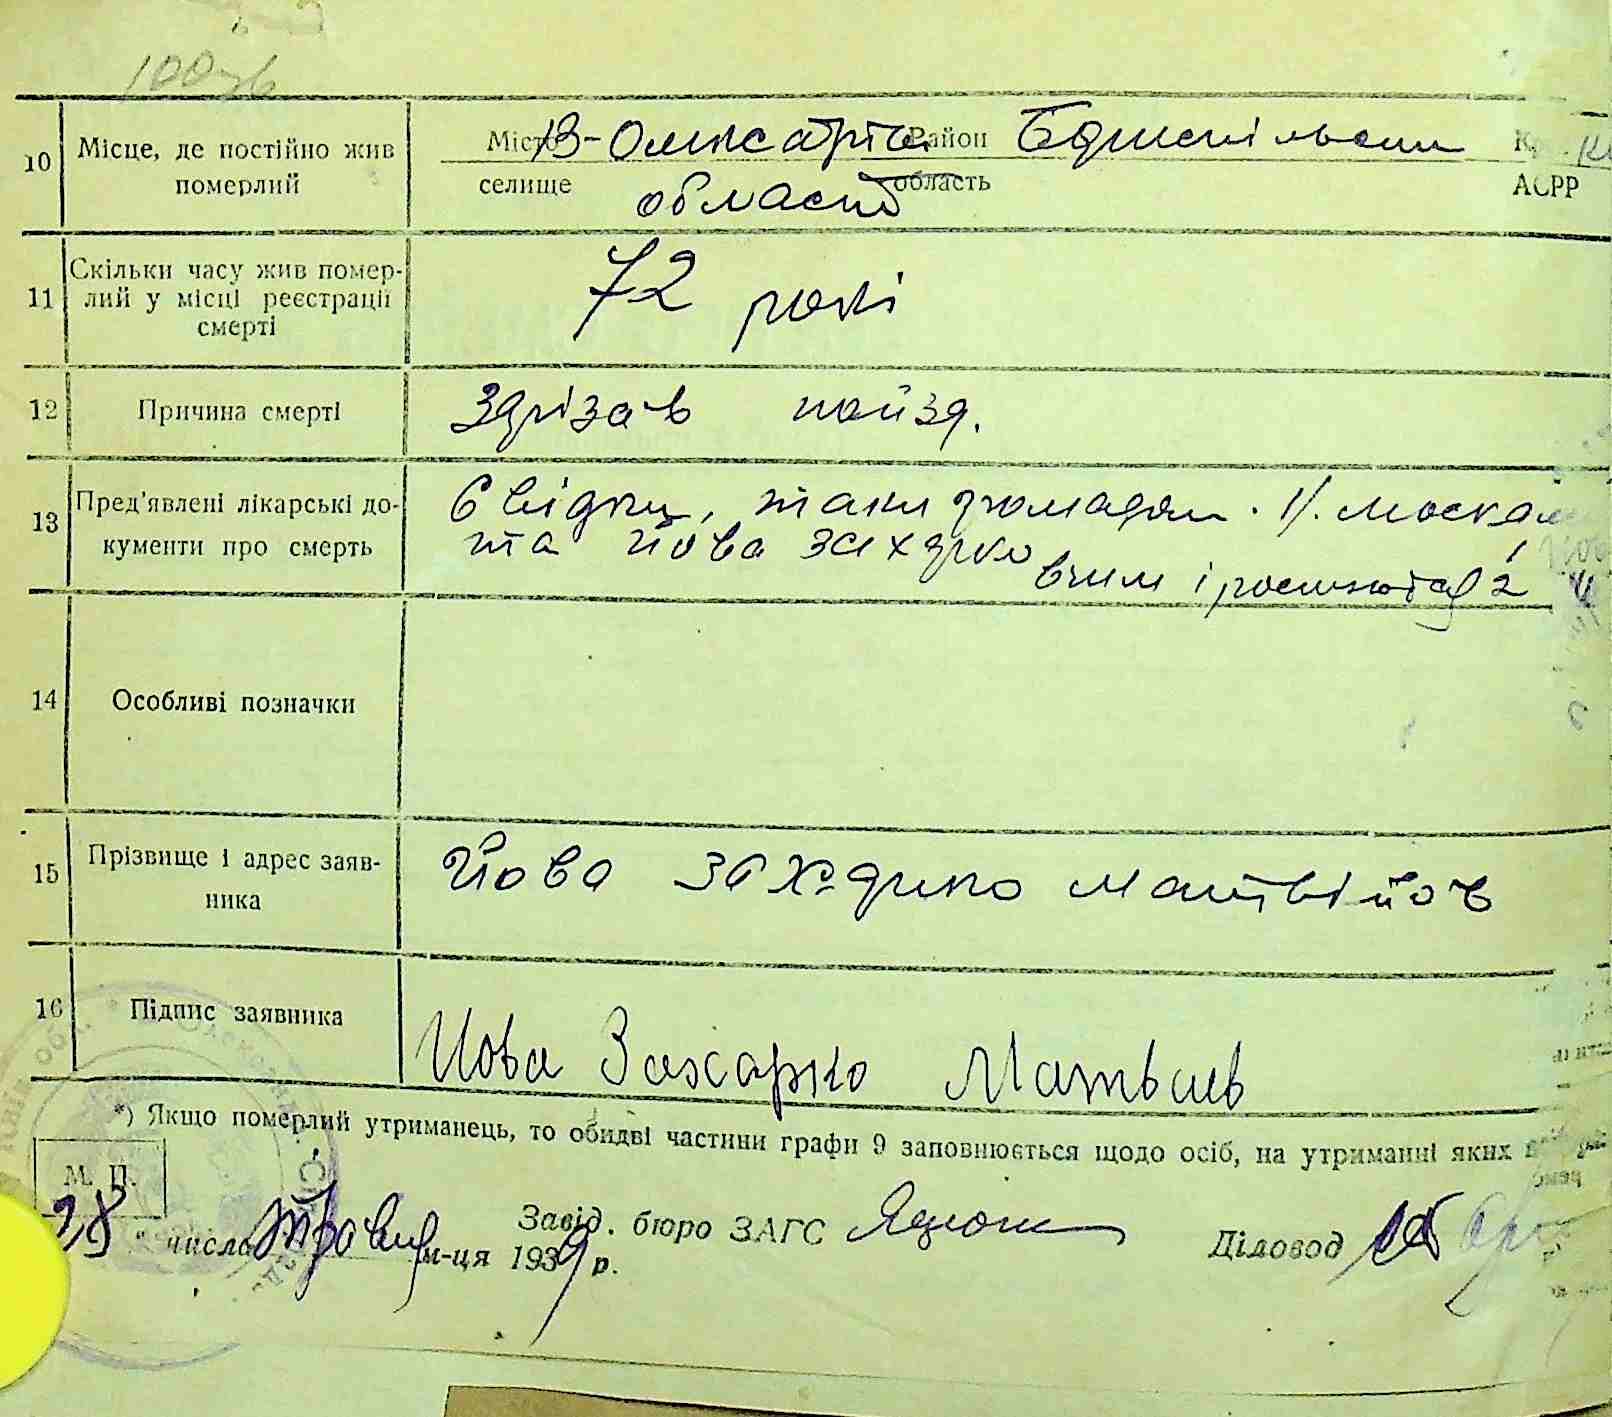 10 Місце, де постійно жив померлий
Місто В-Олександрівка Район Бориспільський
селище область АСРР
області
11 Скільки часу жив померлий у місці реєстрації смерті
72 роки
12 Причина смерті
Зрізав поїзд.
13 Пред'явлені лікарські документи про смерть
Свідки, таки громадян.
та Йова Захарко
14 Особливі позначки
15 Прізвище і адрес заявника
Йова Захарко Матвійов
16 Підпис заявника
Иова Захарко Матвиев
*) Якщо померлий утриманець, то обидві частини графи 9 заповнюється щодо осіб, на утриманні яких
М. П.
28 " числа Травня м-ця 1939 р.
Завід. бюро ЗАГС
Діловод